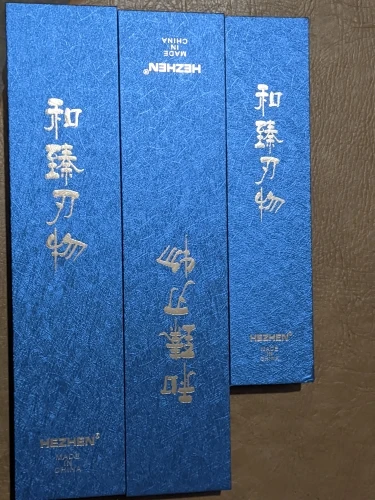 和臻刃物
HEZHEN®
MADE
IN
CHINA
和臻刃物
HEZHEN®
MADE
IN
CHINA
和臻刃物
HEZHEN®
MADE
IN
CHINA